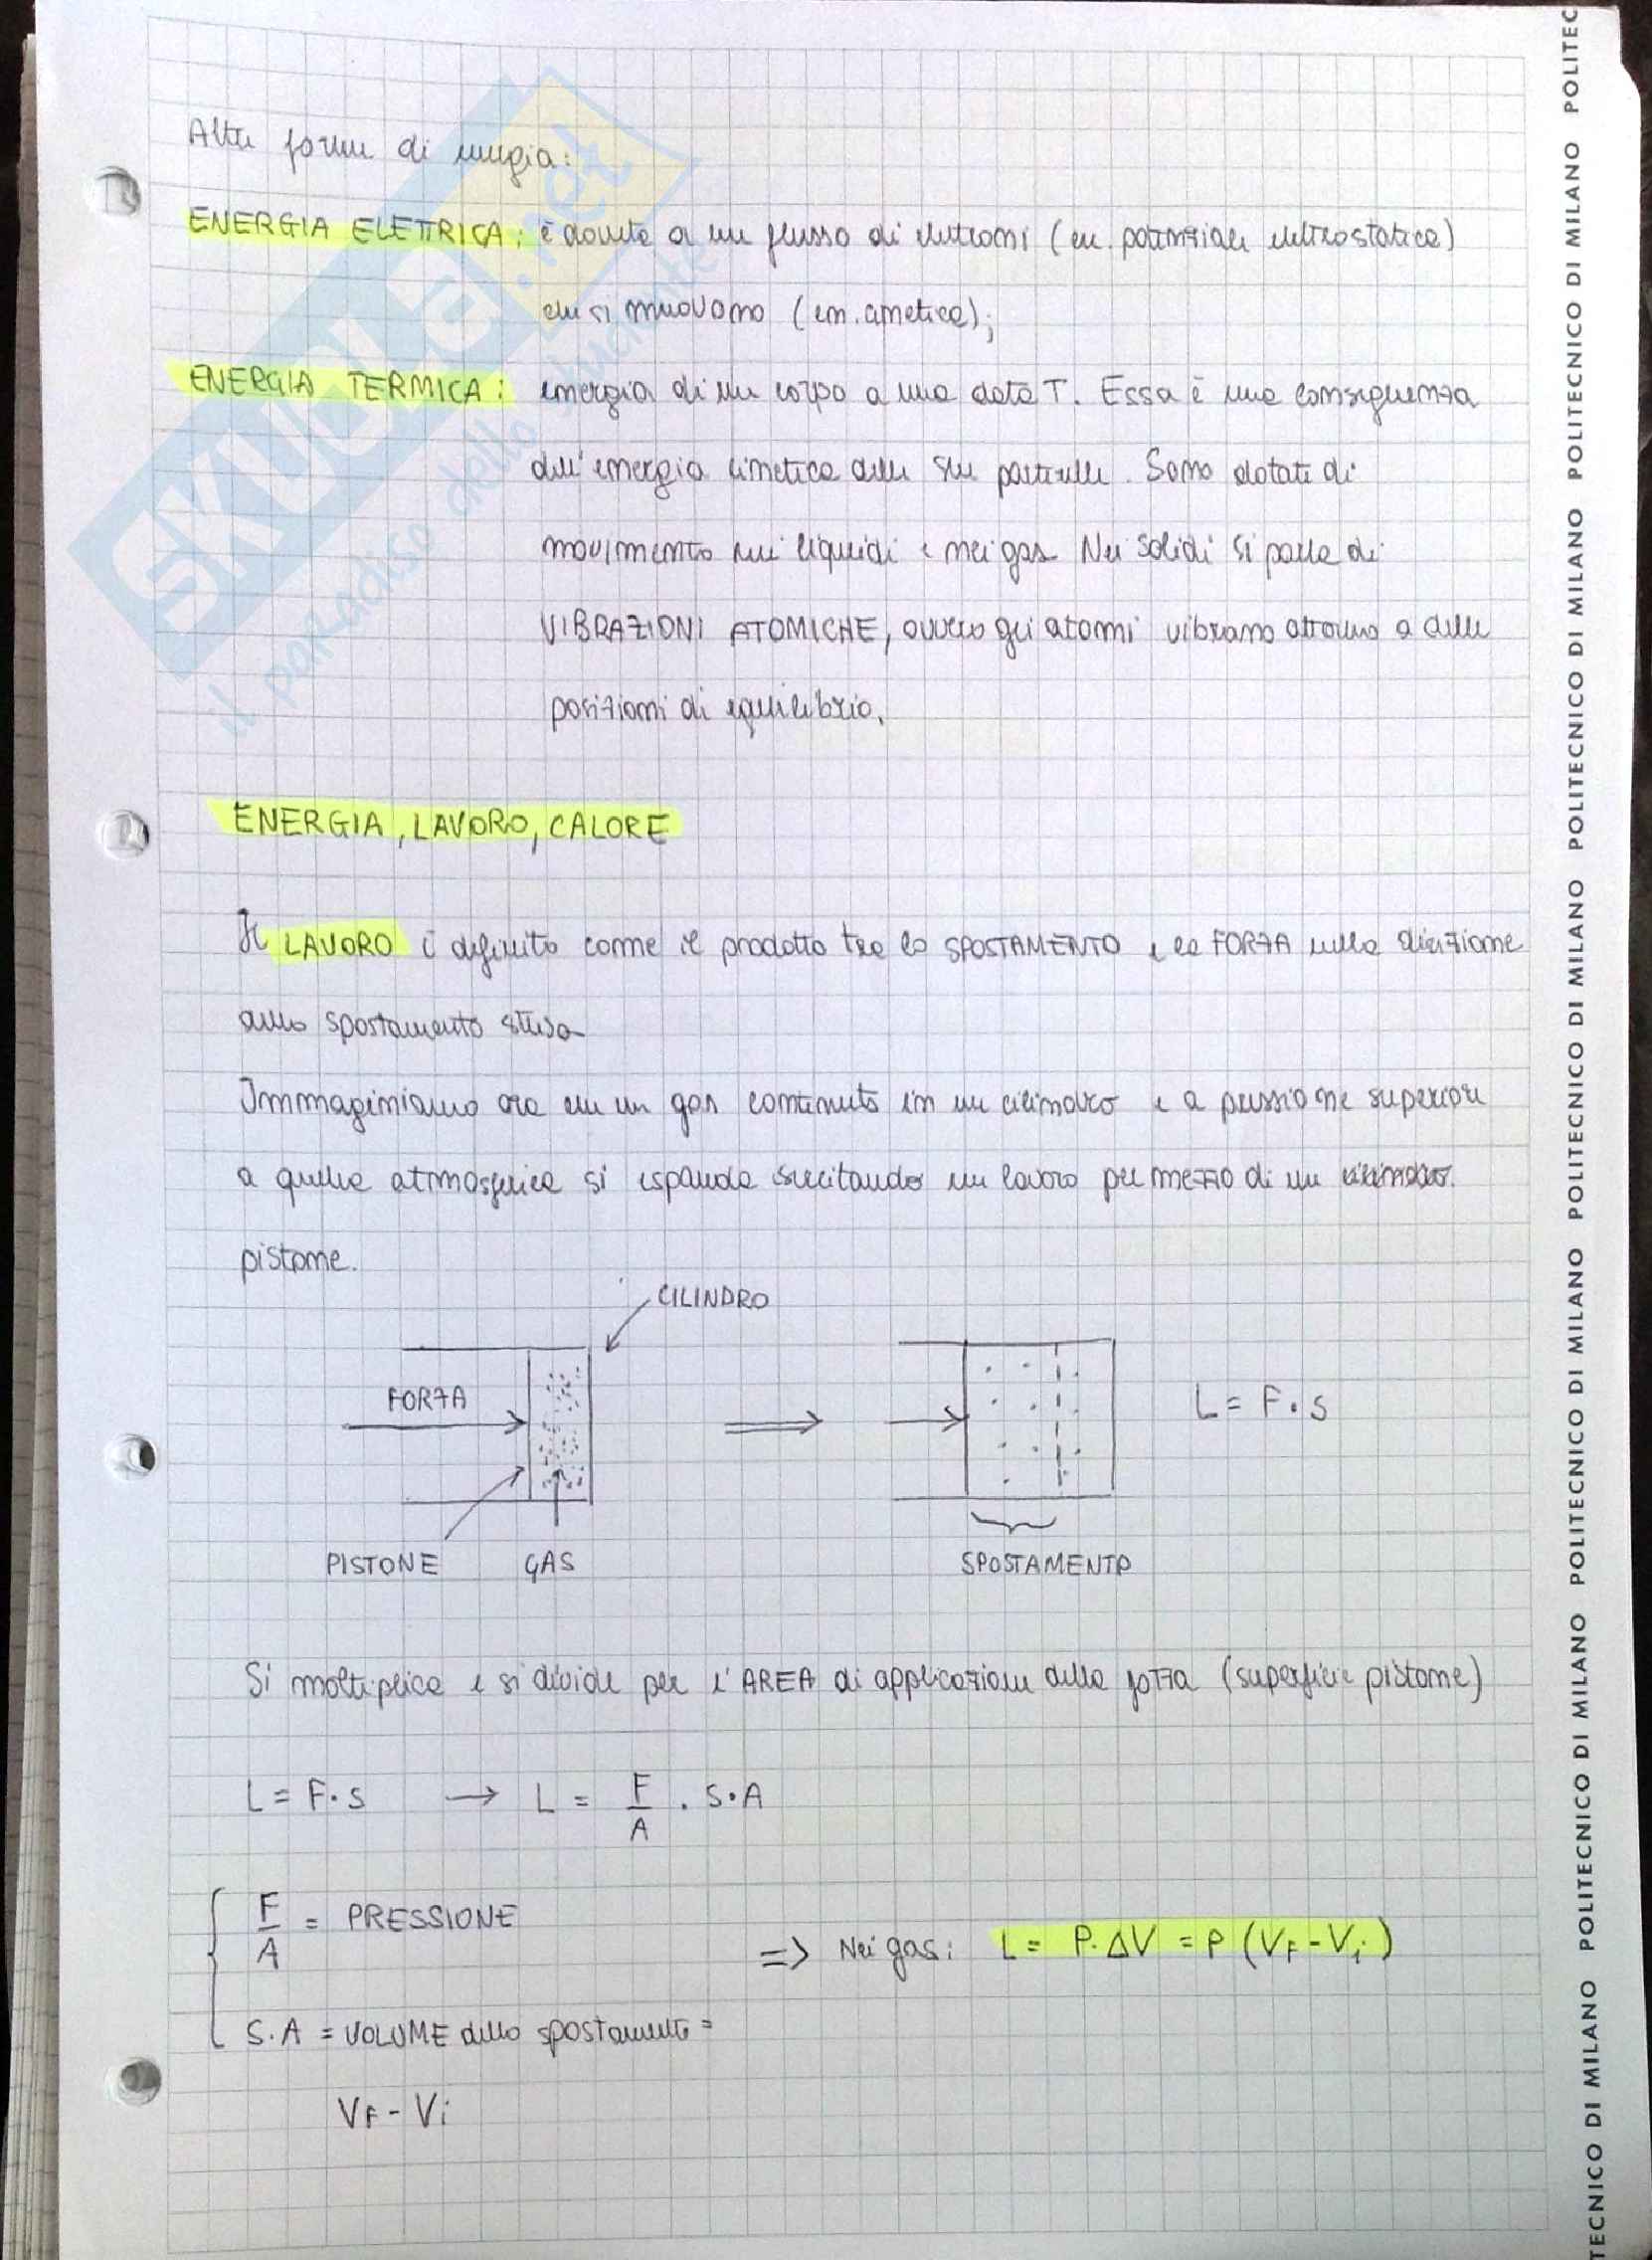 Altre forme di energia:
ENERGIA ELETTRICA: è dovuta a un flusso di elettroni (en. potenziale elettrostatica)
che si muovono (en. cinetica);
ENERGIA TERMICA: energia di un corpo a una data T. Essa è una conseguenza
dell'energia cinetica delle sue particelle. Sono dotati di
movimento nei liquidi e nei gas. Nei solidi si parla di
VIBRAZIONI ATOMICHE, ovvero gli atomi vibrano attorno a delle
posizioni di equilibrio.
ENERGIA, LAVORO, CALORE
Il LAVORO è definito come il prodotto tra lo SPOSTAMENTO e la FORZA nella direzione
dello spostamento stesso
Immaginiamo ora che un gas contenuto in un cilindro e a pressione superiore
a quella atmosferica si espanda esercitando un lavoro per mezzo di un cilindro.
pistone.
CILINDRO
FORZA
L = F · s
PISTONE GAS
SPOSTAMENTO
Si moltiplica e si divide per l'AREA di applicazione della forza (superficie pistone)
L = F · s → L = F/A · S · A
F/A = PRESSIONE
=> Nei gas: L = P · ΔV = P (VF - Vi)
S · A = VOLUME dello spostamento =
VF - Vi
SKUOLA.net
il paradiso dello studente
POLITECNICO DI MILANO POLITECNICO DI MILANO POLITECNICO DI MILANO POLITECNICO DI MILANO POLITECNICO DI MILANO POLITECNICO DI MILANO POLITEC